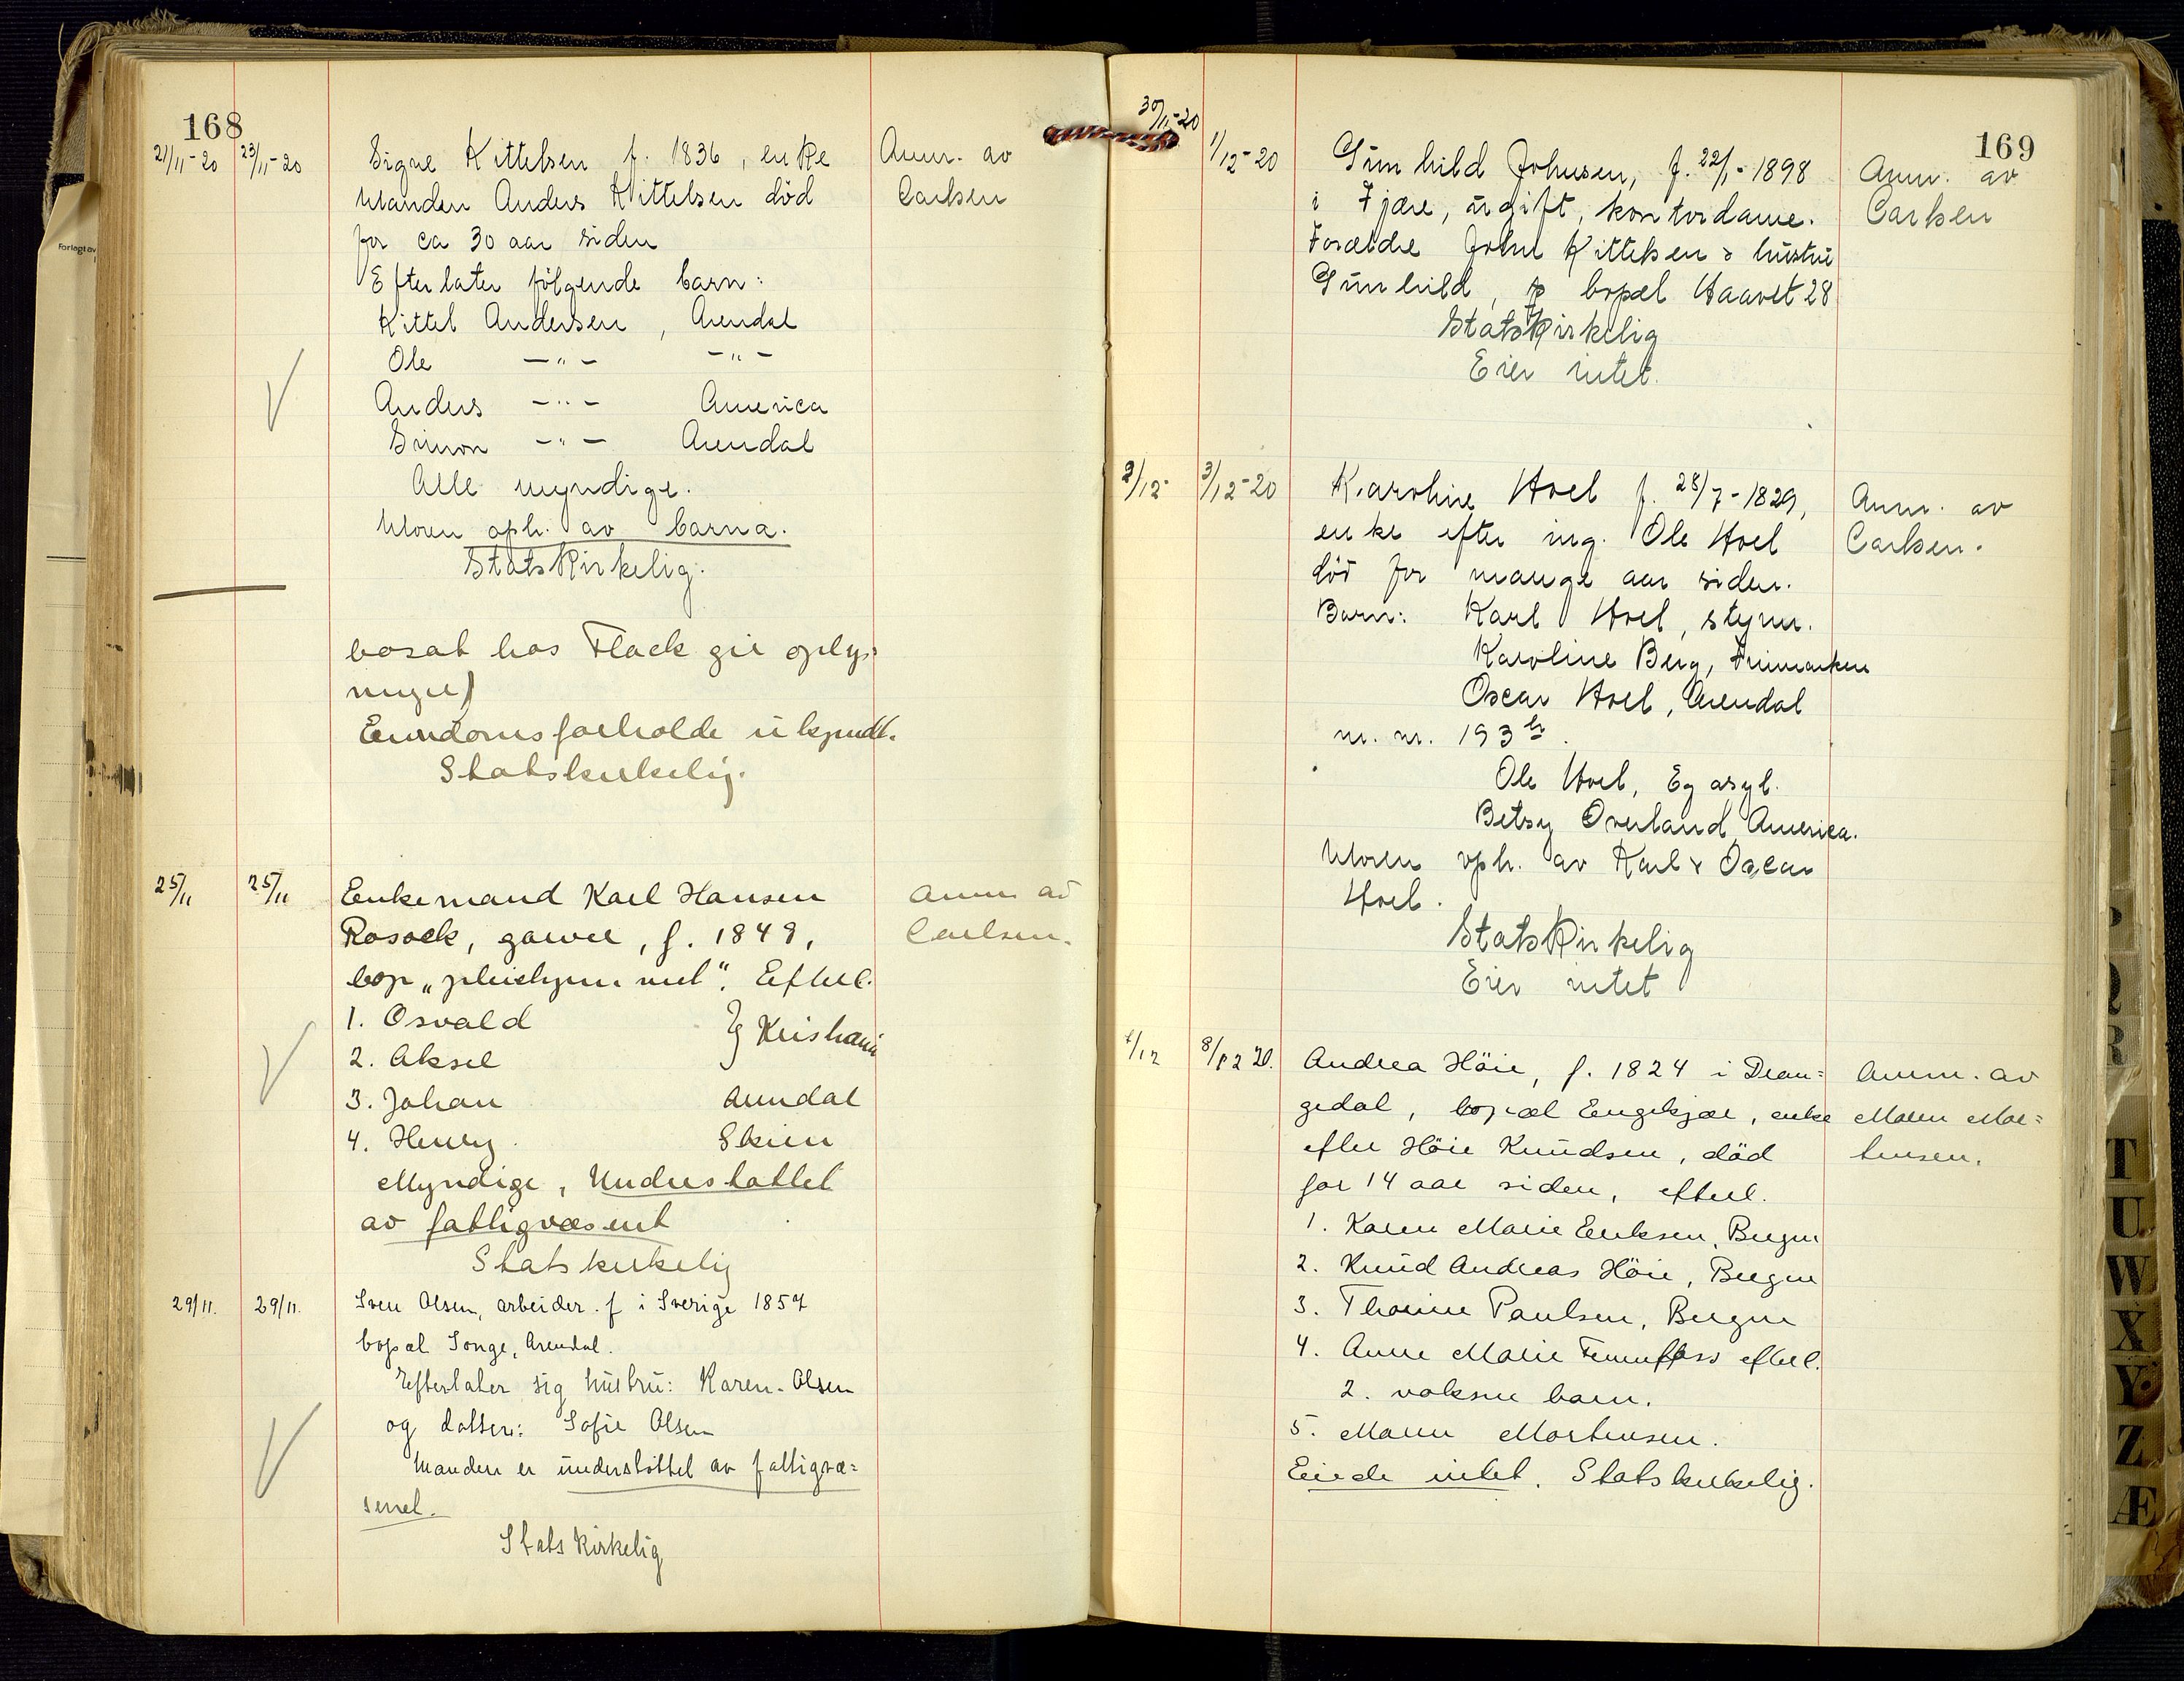 168
21/11-20 23/11-20 Signe Kittelsen f. 1836, enke Anm. av
Manden Anders Kittelsen död Carlsen
for ca 30 aar siden
Efterlater følgende barn:
Kittel Andersen, Arendal
Ole -"- -"-
Anders -"- America
Simon -"- Arendal
Alle myndige.
Moren oph. av barna.
Statskirkelig.
bosat hos Flack gir oplys-
ninger)
Eiendomsforholde ukjendt.
Statskirkelig.
25/11 25/11 Enkemand Karl Hansen Anm av
Rosock, garver, f. 1849, Carlsen.
bop „pleiehjemmet". Efterl.
1. Osvald
2. Aksel } Kristiania
3. Johan Arendal
4. Henry Skien
Myndige, Understøttet
av fattigvæsenet
Statskirkelig
29/11. 29/11. Sven Olsen, arbeider. f i Sverige 1857
bopæl Songe, Arendal.
Efterlater sig hustru: Karen Olsen
og datter: Sofie Olsen
Manden er understöttet av fattigvæ=
senet.
Statskirkelig
Forlagt av
169
30/11-20 1/12-20 Gunhild Johnsen, f. 22/1-1898 Anm. av
i Fjære, ugift, kontordame. Carlsen
Forældre John Kittelsen & hustru
Gunhild, bopæl Haavet 28
Statskirkelig
Eier intet.
2/12- 3/12-20 Karoline Hoel f. 28/7-1829, Anm. av
enke efter ing. Ole Hoel Carlsen.
död for mange aar siden.
Barn: Karl Hoel, styrm.
Karoline Berg,
Oscar Hoel, Arendal
m. nr. 193 b.
Ole Hoel, Eg asyl.
Betsy Överland, America.
Moren oph. av Karl & Oscar
Hoel.
Statskirkelig
Eier intet
8/12 20. Andrea Höie, f. 1824 i Dran= Anm. av
gedal, bopæl Engekjær, enke Maren Mor=
efter Höie Knudsen, död tensen.
for 14 aar siden, efterl.
1. Karen Marie Eriksen, Bergen
2. Knud Andreas Höie, Bergen
3. Thomine Paulsen, Bergen
4. Anne Marie Femmefoss efterl.
2. voksne barn.
5. Maren Mortensen.
Eiede intet. Statskirkelig.
Q
R
T
U
W
X
Y
Z
Æ